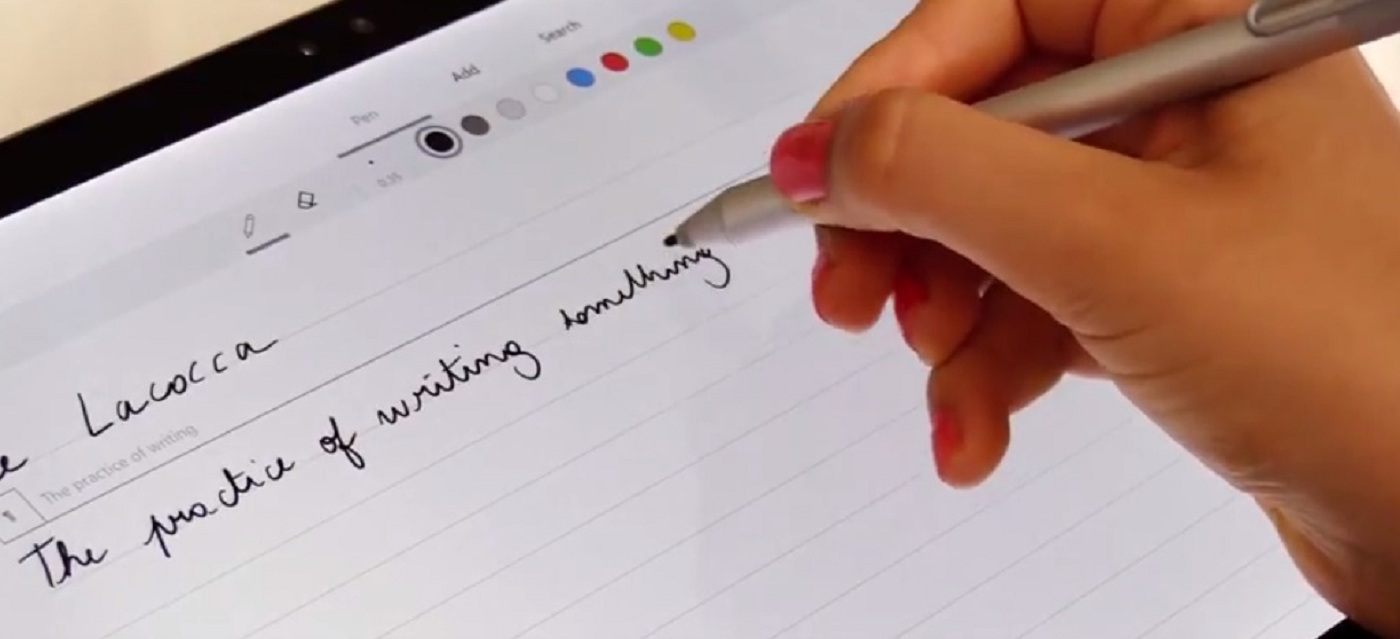 Search
Add
Pen
0.35
Lacocca
The practice of writing
The practice of writing something